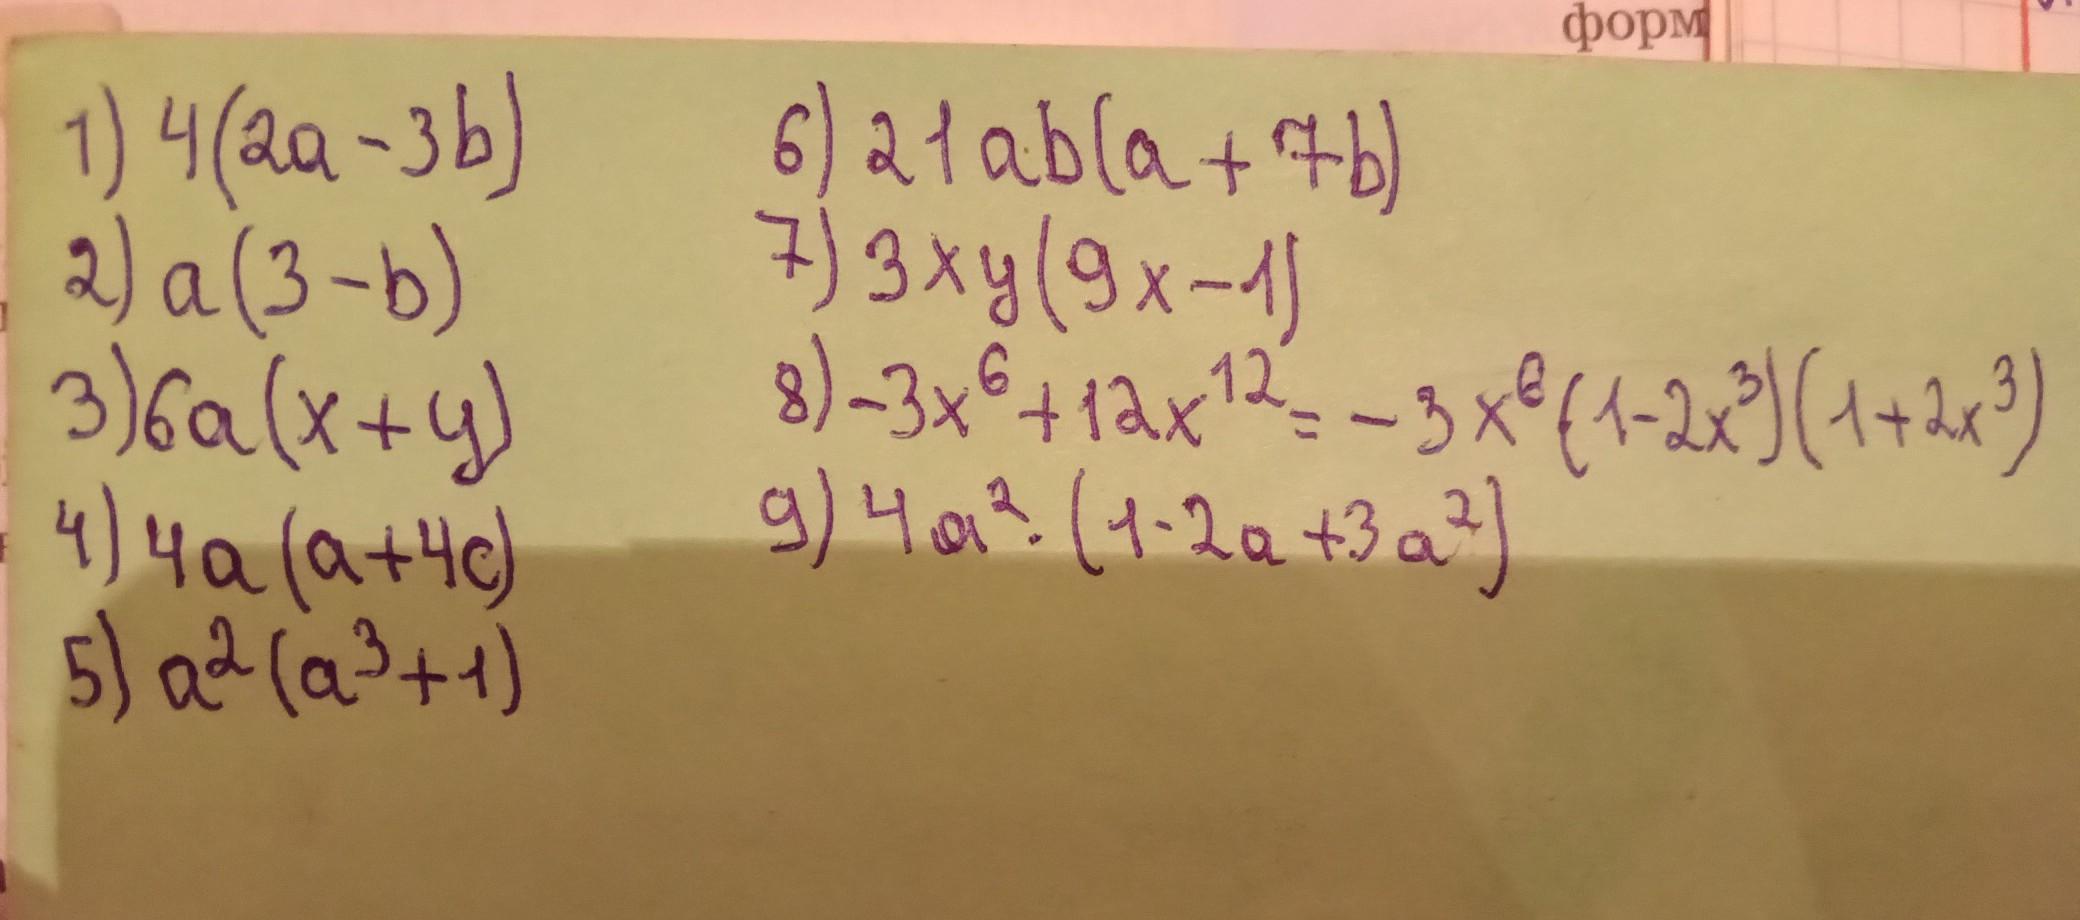 форм
1) 4(2a-3b)
2) a(3-b)
3) 6a(x+y)
4) 4a(a+4c)
5) a²(a³+1)
6) 21ab(a+7b)
7) 3xy(9x-1)
8) -3x⁶+12x¹²=-3x⁶(1-2x³)(1+2x³)
9) 4a²·(1-2a+3a²)